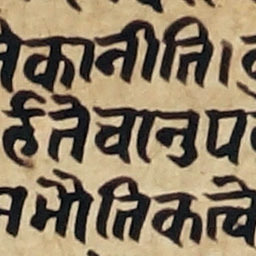 कानीति।
र्हतेवानुप
भौतिकत्वे